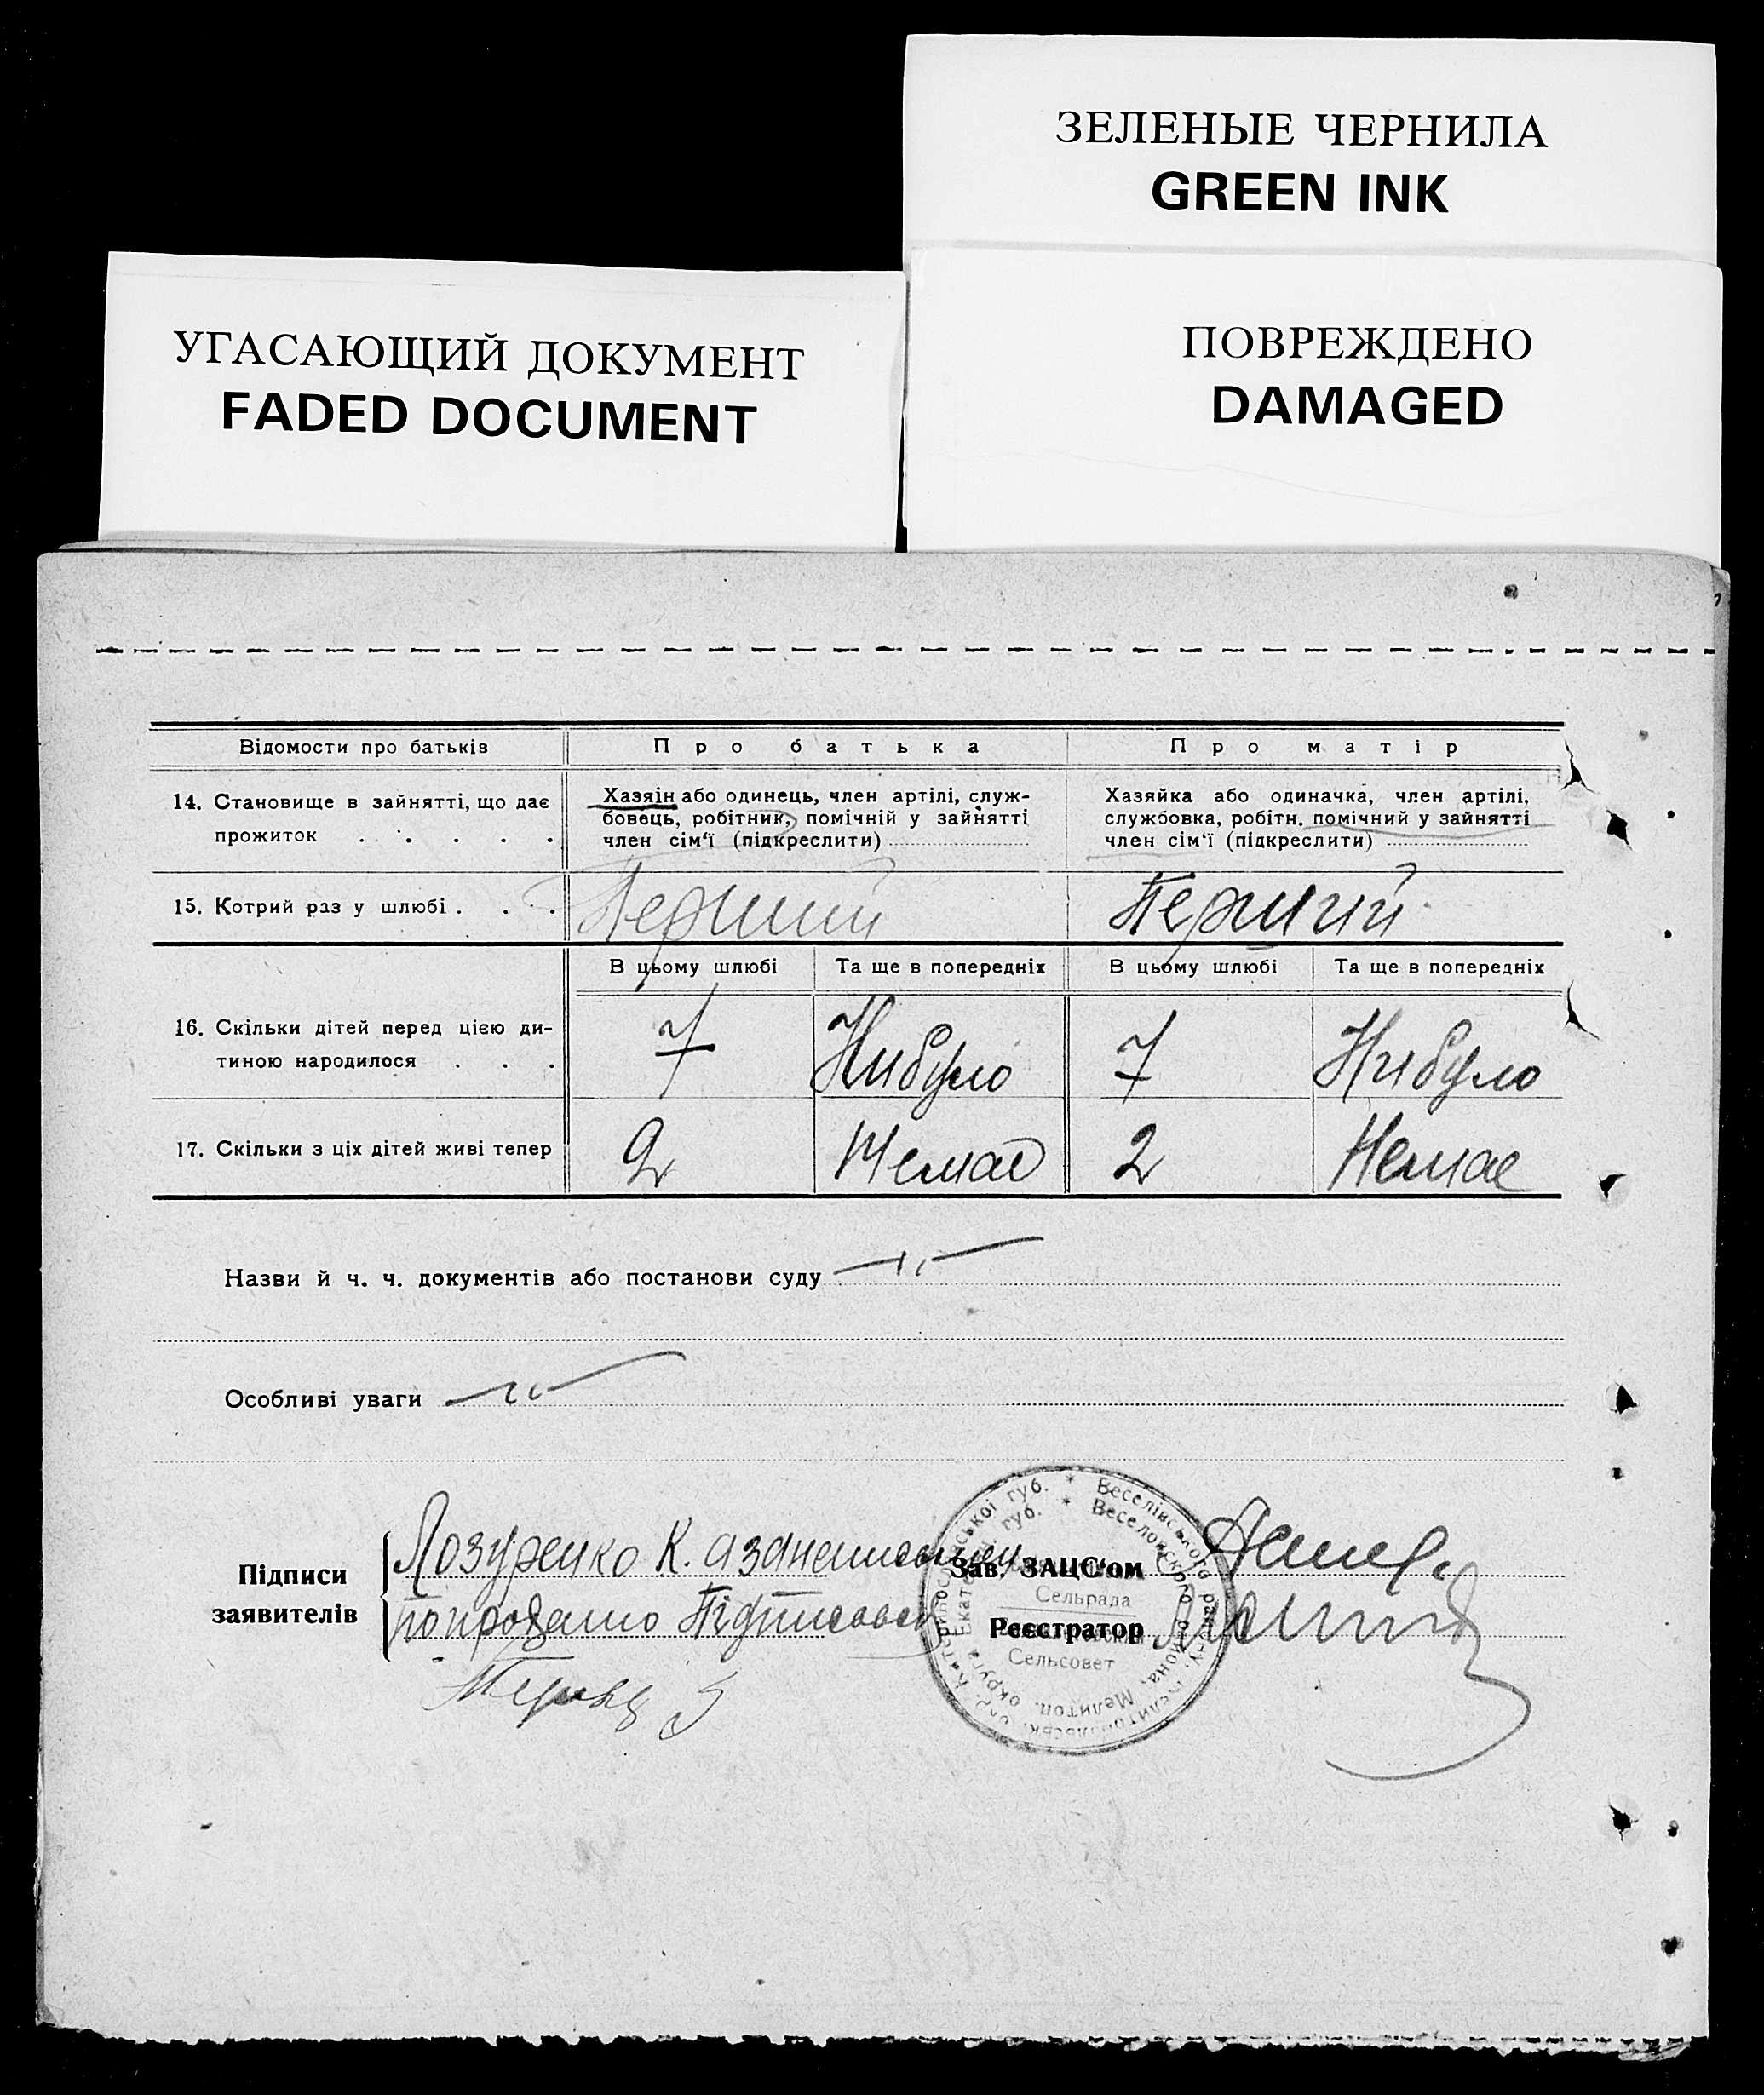 ЗЕЛЕНЫЕ ЧЕРНИЛА
GREEN INK
УГАСАЮЩИЙ ДОКУМЕНТ
FADED DOCUMENT
ПОВРЕЖДЕНО
DAMAGED
Відомости про батьків Про батька Про матір
14. Становище в зайнятті, що дає прожиток . . . . .
Хазяін або одинець, член артілі, служ-
бовець, робітник, помічній у зайнятті
член сім'ї (підкреслити)
Хазяйка або одиначка, член артілі,
службовка, робітн. помічний у зайнятті
член сім'ї (підкреслити)
15. Котрий раз у шлюбі . . . Перший Перший
В цьому шлюбі Та ще в попередніх В цьому шлюбі Та ще в попередніх
16. Скільки дітей перед цією ди-
тиною народилося . . . 7 Нибуло 7 Нибуло
17. Скільки з ціх дітей живі тепер 2 Немає 2 Немає
Назви й ч. ч. документів або постанови суду
Особливі уваги
Підписи
заявителів
Лозуренко К. а за неписьмен
Зав. ЗАЦС'ом
Реєстратор
Сельрада
Сельсовет
Веселівського району, Мелитопільськ. окр. Катеринославської губ.
Веселовского района, Мелитоп. округа Екатер. губ.